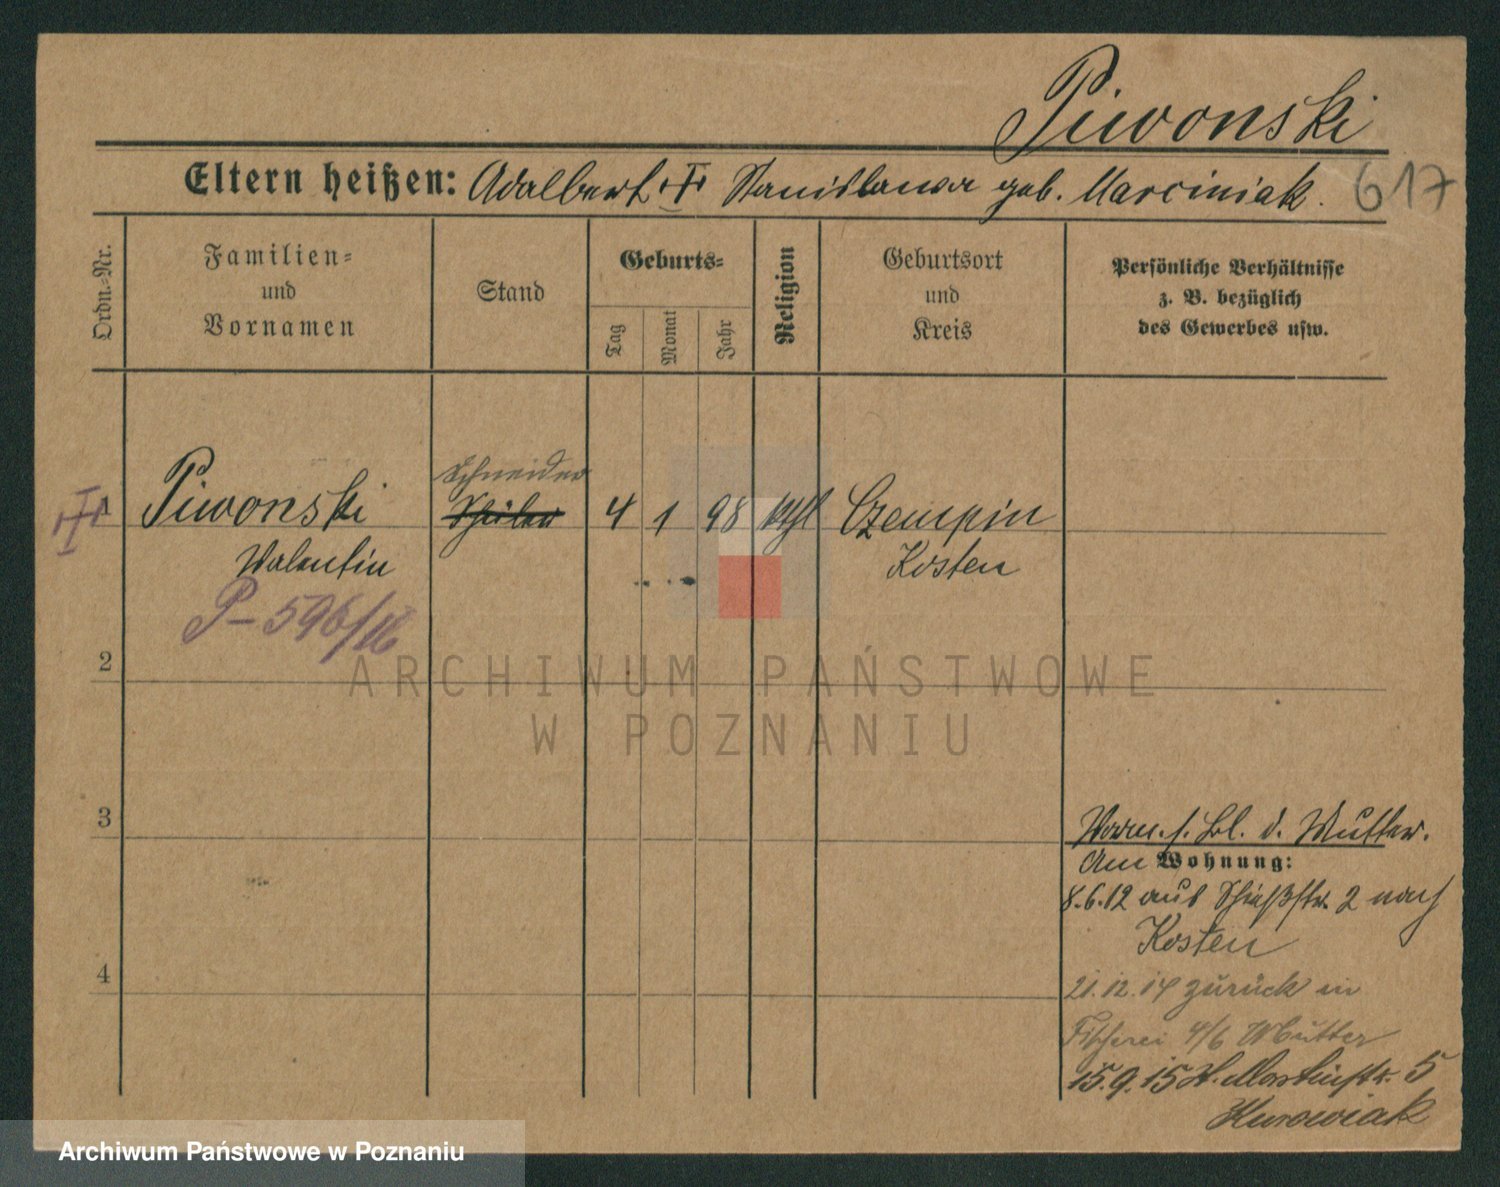 Piwonski
Eltern heißen: Adalbert Stanislawa geb. Marciniak.
617
Ordn.=Nr.
Familien=
und
Vornamen
Stand
Geburts=
Tag
Monat
Jahr
Religion
Geburtsort
und
Kreis
Persönliche Verhältnisse
z. B. bezüglich
des Gewerbes usw.
Schneider
1 Piwonski Schüler 4 1 98 kthl Czempin
Valentin Kosten
P-596/16
2
ARCHIWUM PAŃSTWOWE
W POZNANIU
3
d. Mutter.
Am Wohnung:
8.6.12 aus Schießstr. 2 nach
Kosten
4
21.12.14 zurück in
Fischerei 4/6 Mutter
15.9.15 St. Martinstr. 5
Kurowiak
Archiwum Państwowe w Poznaniu